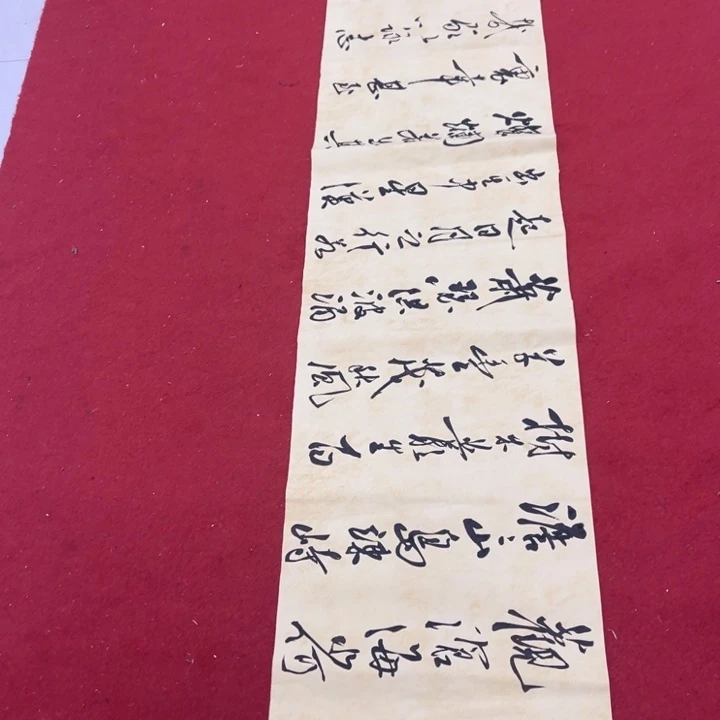 觀滄海水何
澹〻山島竦峙
樹木叢生百
草豐茂秋風
蕭瑟洪波涌
起日月之行若
出其中星漢
燦爛若出其
裏幸甚至
哉歌以詠志